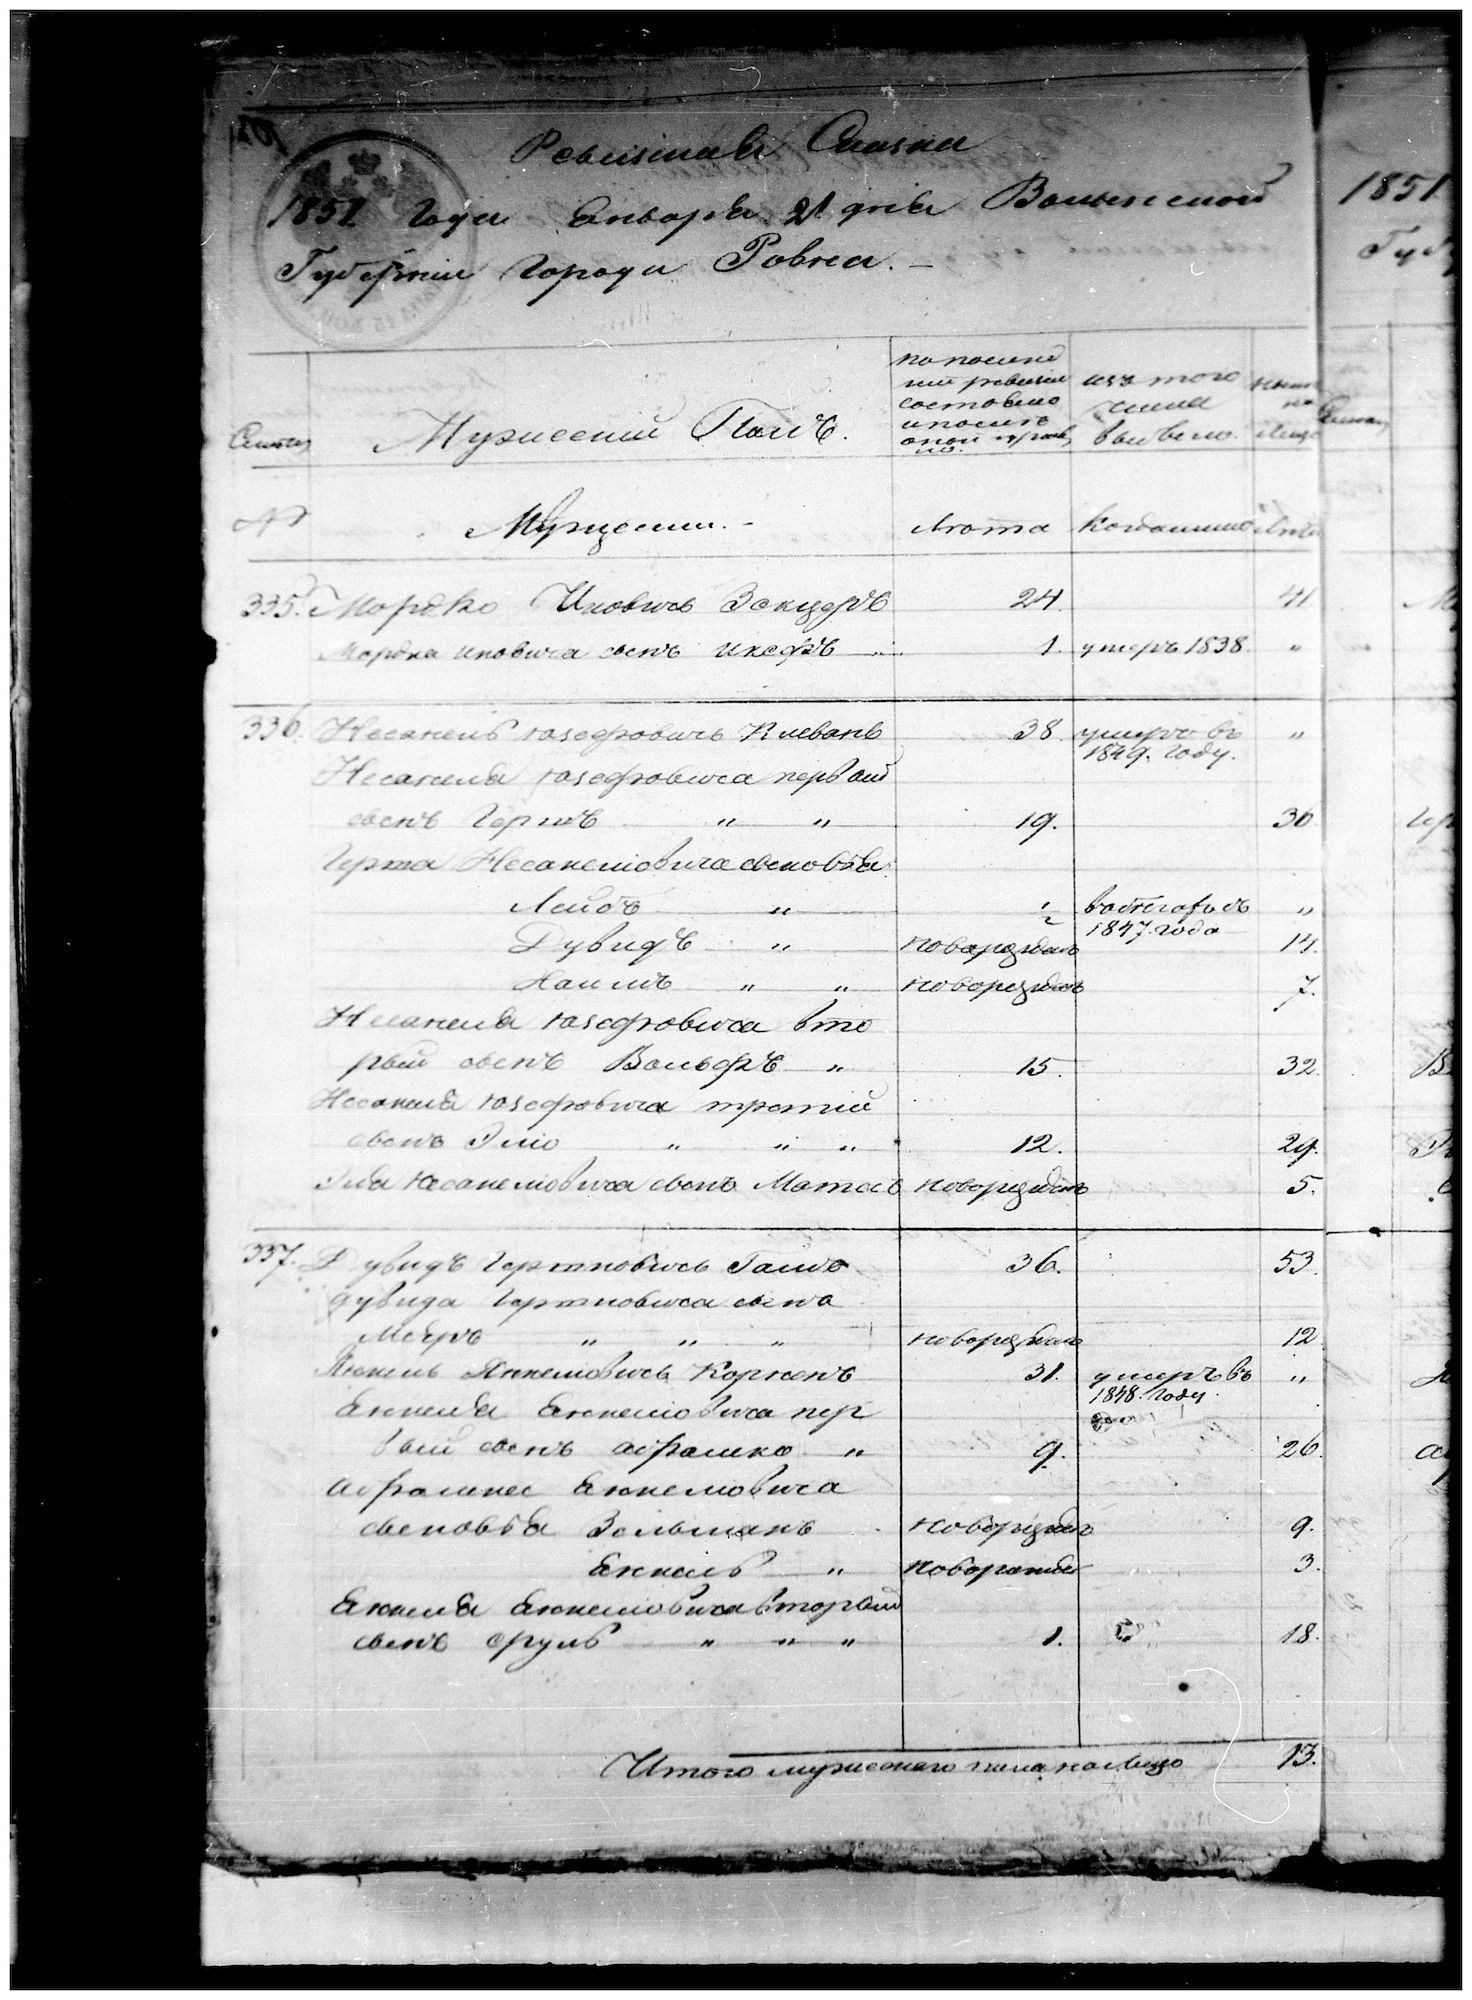 Ревизская Сказка
1851 Года Января 21 дня Волынской
Губернии Города Ровна.
1851
Губ
по послед
ней ревизии
состояло
и после
оной прибы
ло.
изъ того
числа
выбыло.
ныне
на
лицо
Семьи
Мужеский Полъ.
№
Мужчины
Лета
Когда именно
Лета
335. Мордко Ицковичь Зокцеръ 24 41
Мордка Ицковича сынъ Иксефъ " 1. умеръ 1838 "
336. Несанель Юзефовичь Клевань 38. умеръ въ "
1849. году.
Несанеля Юзефовича первый
сынъ Гершъ " " 19. 36
Герша Несанелiовича сыновья
Лейбъ " 1/2 в бегах съ "
1847. года
Дувидъ " новорожден 14.
Хаимъ " " новорожден 7.
Несанеля Юзефовича вто
рый сынъ Вольфъ " 15. 32.
Несанеля Юзефовича третий
сынъ Элiо " " " 12. 29.
Эля Несанелiовича сынъ Матесъ новорожден 5.
337. Дувидъ Гершковичь Галио 36. 53.
Дувида Гершковича сынъ
Мееръ " " " новорожден 12
Янкель Янкелiовичь Корженъ 31. умеръ въ "
1848. году.
Янкеля Янкелiовича пер
вый сынъ Абрамко " 9. 26.
Абрамка Янкелiовича
сыновья Зельманъ новорожден 9.
Янкель " новорожден 3.
Янкеля Янкелiовича вторый
сынъ Сруль " " " 1. 18.
Итого мужескаго пола на лицо 13.